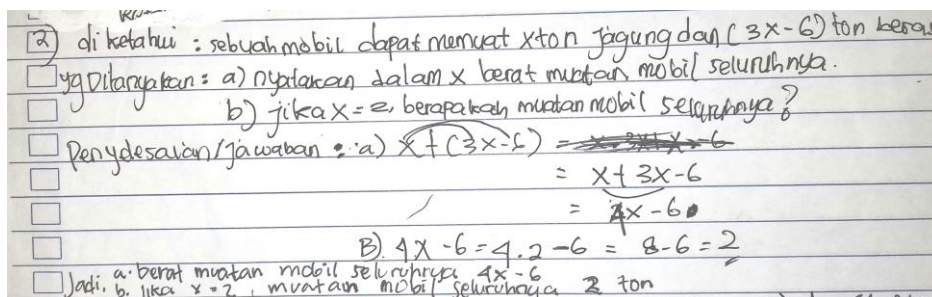 2) diketahui : sebuah mobil dapat memuat x ton jagung dan (3x-6) ton beras
yg Ditanyakan : a) nyatakan dalam x berat muatan mobil seluruhnya.
b) jika x = 2, berapakah muatan mobil seluruhnya?
Penyelesaian/jawaban : a) x+(3x-6) =
= x+3x-6
= 4x-6
B). 4x-6=4.2-6 = 8-6=2
Jadi, a. berat muatan mobil seluruhnya 4x-6
b. jika x=2, muatan mobil seluruhnya 2 ton